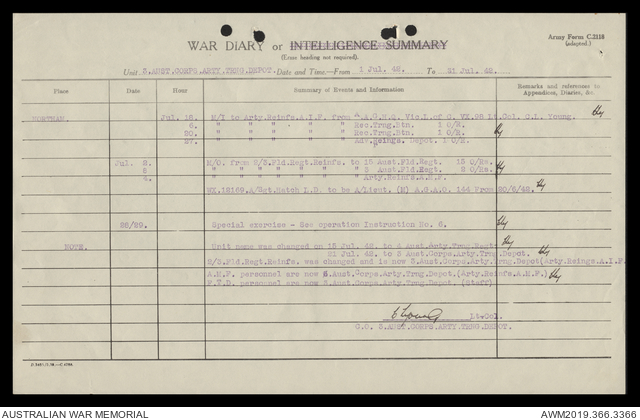 Army Form C.2118
(adapted.)
WAR DIARY or INTELLIGENCE SUMMARY
(Erase heading not required).
Unit 3.AUST.CORPS.ARTY.TRNG.DEPOT. Date and Time—From 1 Jul. 42. To 31 Jul. 42.
Place Date Hour Summary of Events and Information Remarks and references to Appendices, Diaries, &c.
Jul. 18. M/I to Arty.Reinfs.A.I.F. from A.G.H.Q. Vic.L.of C. VX.98 Lt.Col. C.L. Young.
6. " " " " " Rec.Trng.Btn. 1 O/R.
20. " " " " " Rec.Trng.Btn. 1 O/R.
27. " " " " " Depot. 1 O/R.
Jul. 2. M/O. from 2/3.Fld.Regt.Reinfs. to 15 Aust.Fld.Regt. 15 O/Rs.
3 " " " " " " Aust.Fld. Regt. 2 O/Rs.
4. " " " " " " Arty.Reinfs.A.M.F.
WX.12169.A/Sgt.Hatch L.D. to be A/Lieut. (E) A.G.A.O. 144 From 20/6/42.
28/29. Special exercise - See operation Instruction No. 6.
NOTE. Unit name was changed on 18 Jul. 42. to 4 Aust.Arty.Trng.Regt.
21 Jul. 42. to 3 Aust.Corps.Arty.Trng.Depot.
2/3.Fld.Regt.Reinfs. was changed and is now 3.Aust.Corps.Arty.Trng.Depot(Arty.Reinfs.A.I.F.
A.M.F. personnel are now 3.Aust.Corps.Arty.Trng.Depot.(Arty.Reinfs.A.M.F.)
P.E.D. personnel are now 3.Aust.Corps.Arty.Trng.Depot.(Staff)
C L Young Lt-Col.
C.O. 3.AUST.CORPS.ARTY.TRNG.DEPOT.
AUSTRALIAN WAR MEMORIAL AWM2019.366.3366